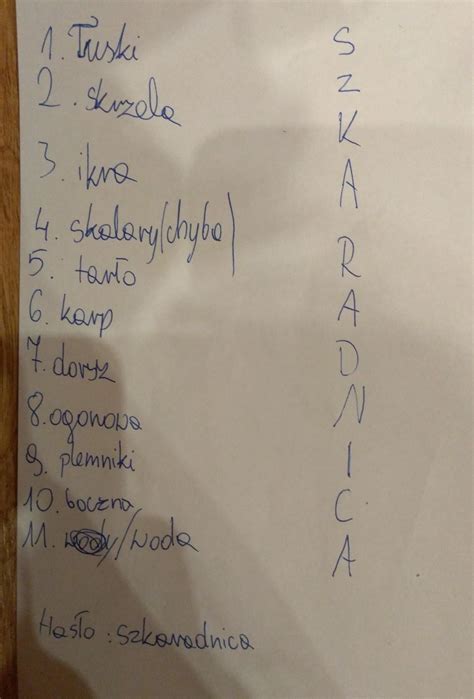 1. Łuski S
2. skrzela Z
K
3. ikra A
4. skalary (chyba)
5. tarło R
6. karp A
7. dorsz D
8. ogonowa N
9. plemniki I
10. boczna C
11. wody/woda A
Hasło: szkaradnica